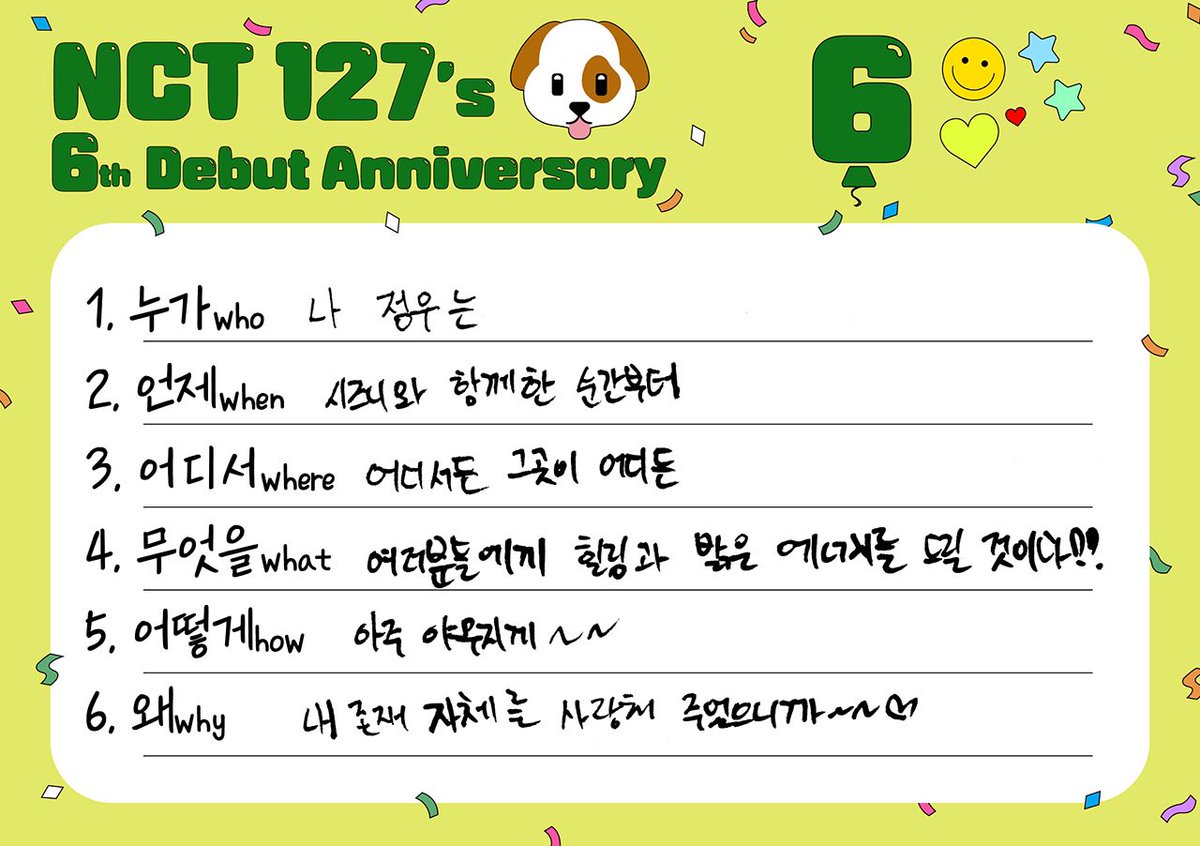 NCT 127's
6th Debut Anniversary
6
1. 누가who 나 정우는
2. 언제when 시즈니와 함께한 순간부터
3. 어디서where 어디서든 그곳이 어디든
4. 무엇을what 여러분들에게 힐링과 밝은 에너지를 드릴 것이다!!!
5. 어떻게how 아주 야무지게~~
6. 왜why 내 존재 자체를 사랑해 주었으니까~~♡